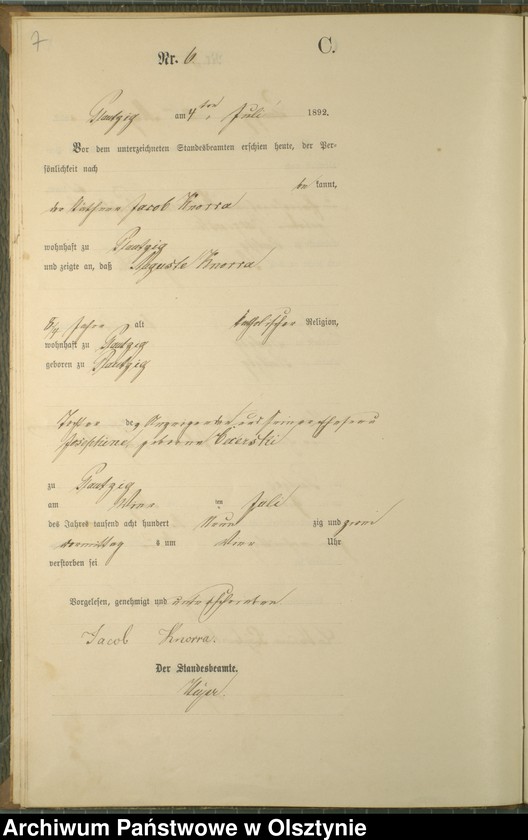 7
C.
Nr. 6
am 4ten Juli 1892.
Vor dem unterzeichneten Standesbeamten erschien heute, der Per-
sönlichkeit nach
be kannt,
der Käthner Jacob Knorra
wohnhaft zu
und zeigte an, daß Auguste Knorra
3/4 Jahre alt katholischer Religion,
wohnhaft zu
geboren zu
Tochter des Anzeigenden und seiner Ehefrau
Josephine geborene
zu
am im Juli
des Jahres tausend acht hundert Neun zig und zwei
vormittag s um Uhr
verstorben sei
Vorgelesen, genehmigt und unterschrieben
Jacob Knorra.
Der Standesbeamte.
Archiwum Państwowe w Olsztynie